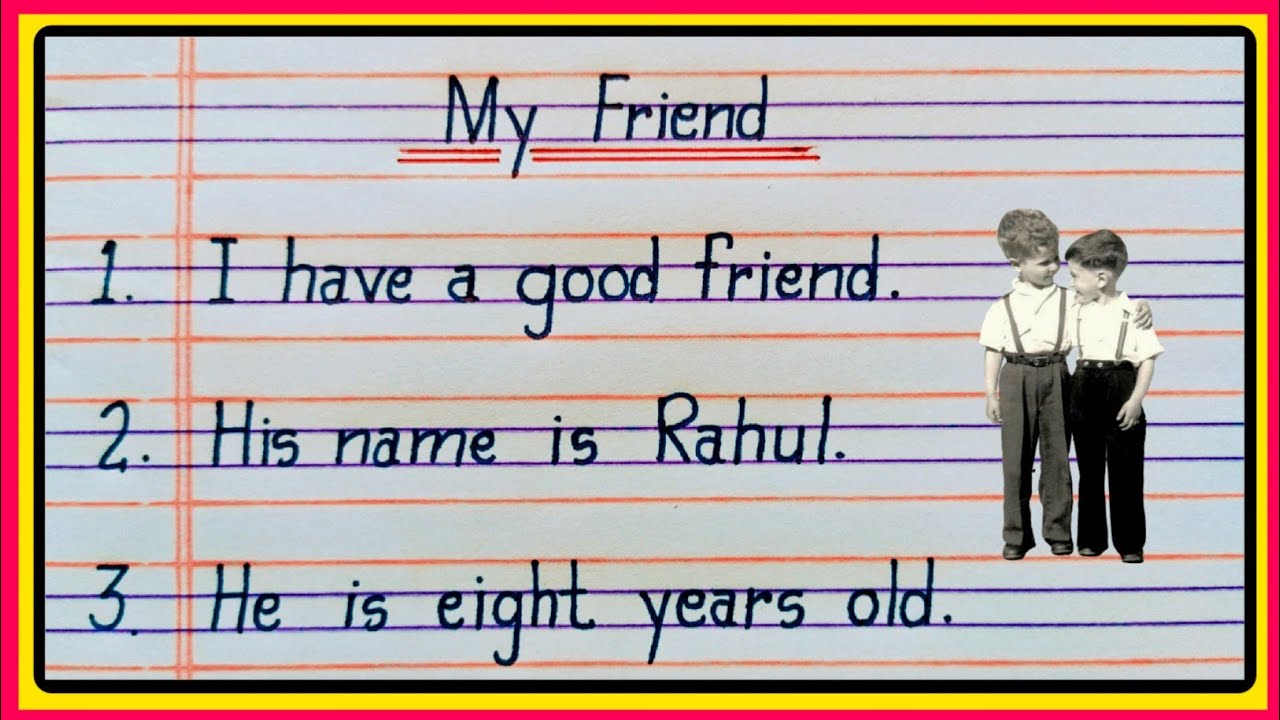 My Friend
1. I have a good friend.
2. His name is Rahul.
3. He is eight years old.